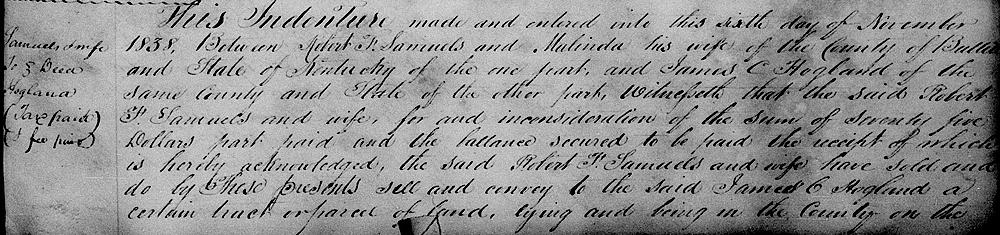 This Indenture made and entered into this sixth day of November
Samuels & wife
1838, Between Robert F. Samuels and Malinda his wife of the County of
To } Deed
and State of Kentucky of the one part, and James C Hogland of the
Hogland
same County and State of the other part, Witnesseth that the said Robert
(Tax paid)
F. Samuels and wife, for and inconsideration of the sum of seventy five
(& fee paid)
Dollars part paid and the ballance secured to be paid the receipt of which
is herily acknowledged, the said Robert F. Samuels and wife have sold and
do by These presents sell and convey to the said James C Hogland a
certain tract or parcel of land, lying and being in the County on the